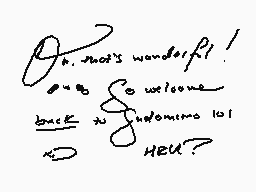 Oh, that's wonderful!
... So welcome
back to Sudomemo 101
xD HEH?